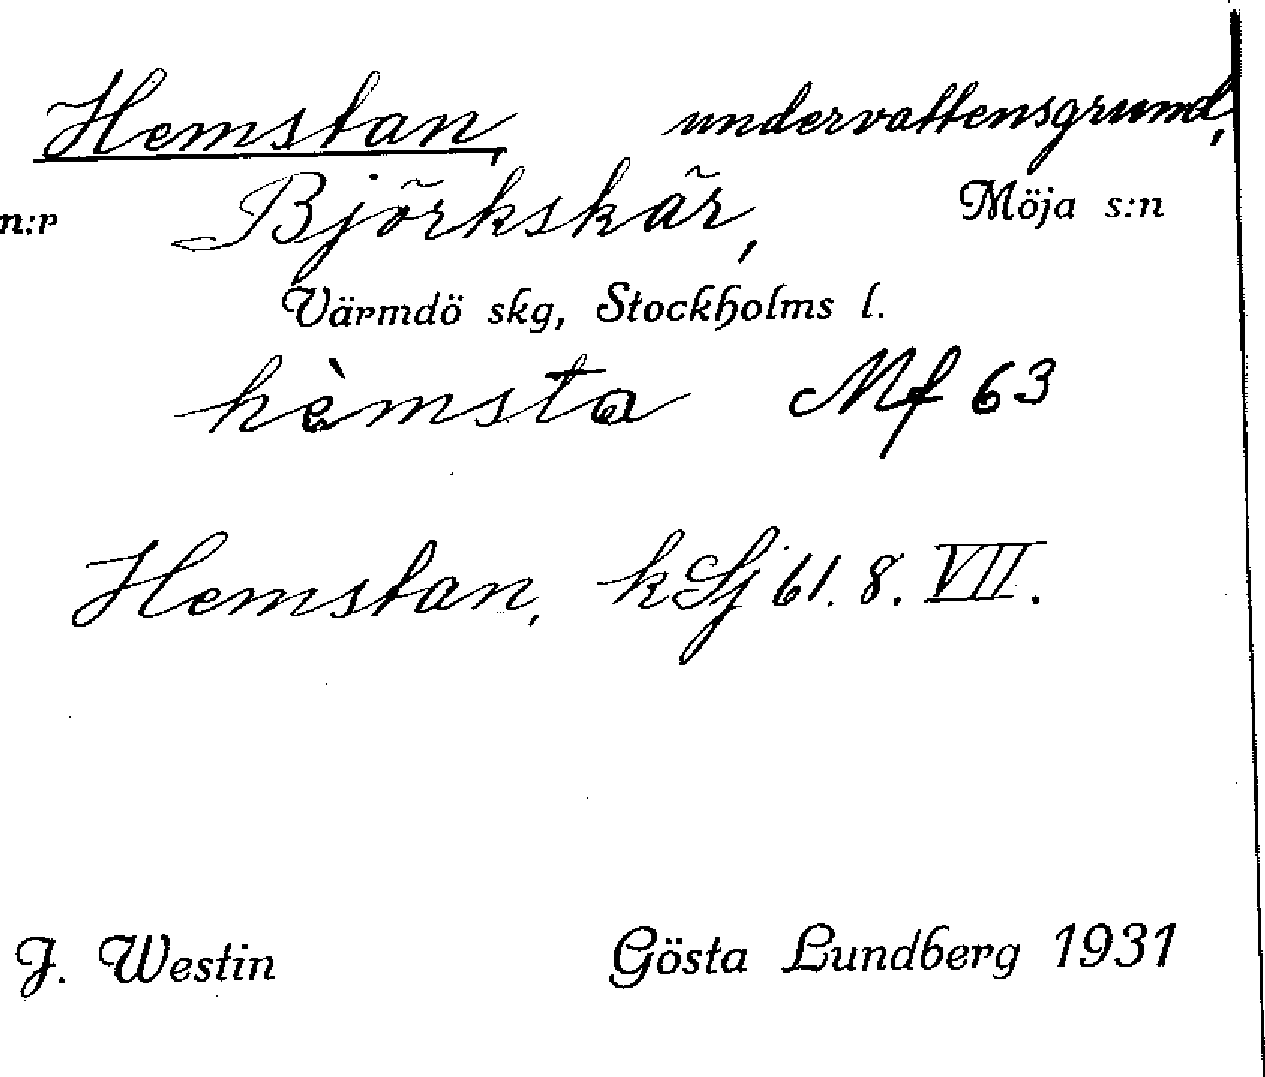 Hemstan, undervattensgrund,
n:r Björkskär, Möja s:n
Värmdö skg, Stockholms l.
hèmsta Mf 63
Hemstan, kSj 61. 8. VII.
J. Westin Gösta Lundberg 1931